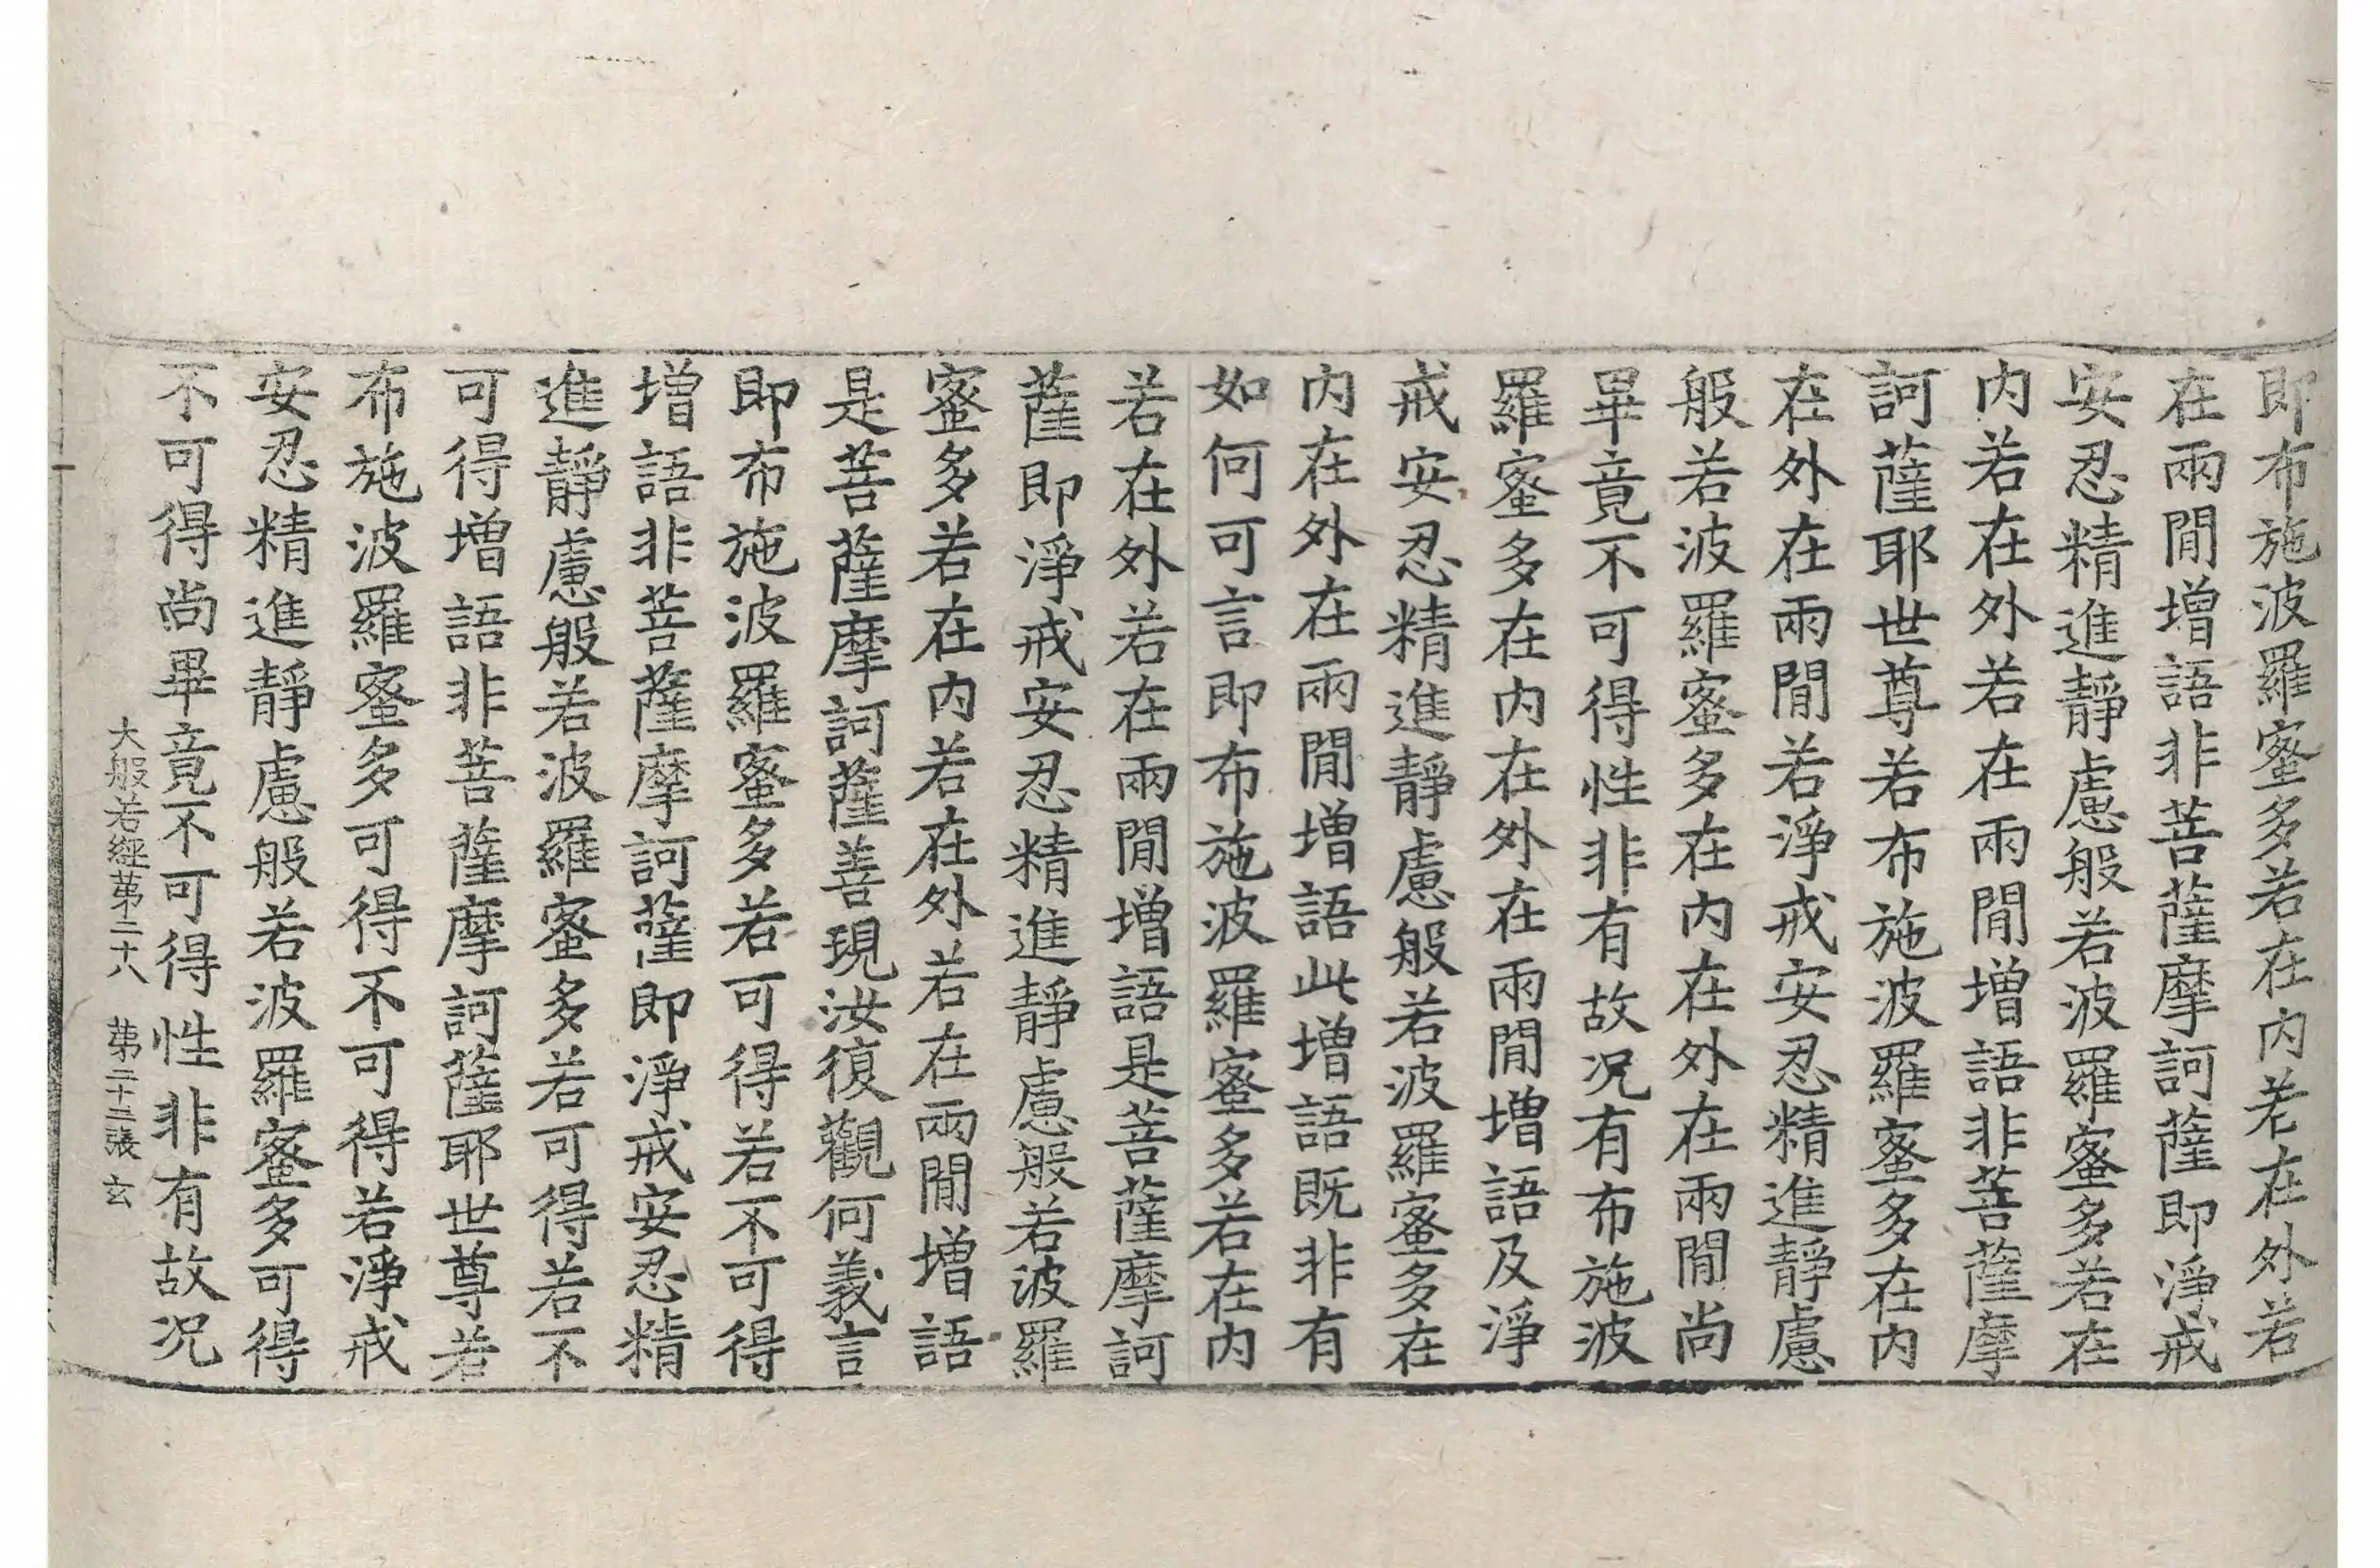 即布施波羅蜜多若在内若在外若
在兩閒增語非菩薩摩訶薩即淨戒
安忍精進靜慮般若波羅蜜多若在
内若在外若在兩閒增語非菩薩摩
訶薩耶世尊若布施波羅蜜多在内
在外在兩閒若淨戒安忍精進靜慮
般若波羅蜜多在内在外在兩閒尚
畢竟不可得性非有故况有布施波
羅蜜多在内在外在兩閒增語及淨
戒安忍精進靜慮般若波羅蜜多在
内在外在兩閒增語此增語既非有
如何可言即布施波羅蜜多若在内
若在外若在兩閒增語是菩薩摩訶
薩即淨戒安忍精進靜慮般若波羅
蜜多若在内若在外若在兩閒增語
是菩薩摩訶薩善現汝復觀何義言
即布施波羅蜜多若可得若不可得
增語非菩薩摩訶薩即淨戒安忍精
進靜慮般若波羅蜜多若可得若不
可得增語非菩薩摩訶薩耶世尊若
布施波羅蜜多可得不可得若淨戒
安忍精進靜慮般若波羅蜜多可得
不可得尚畢竟不可得性非有故况
大般若經第二十八 第二十二張 玄